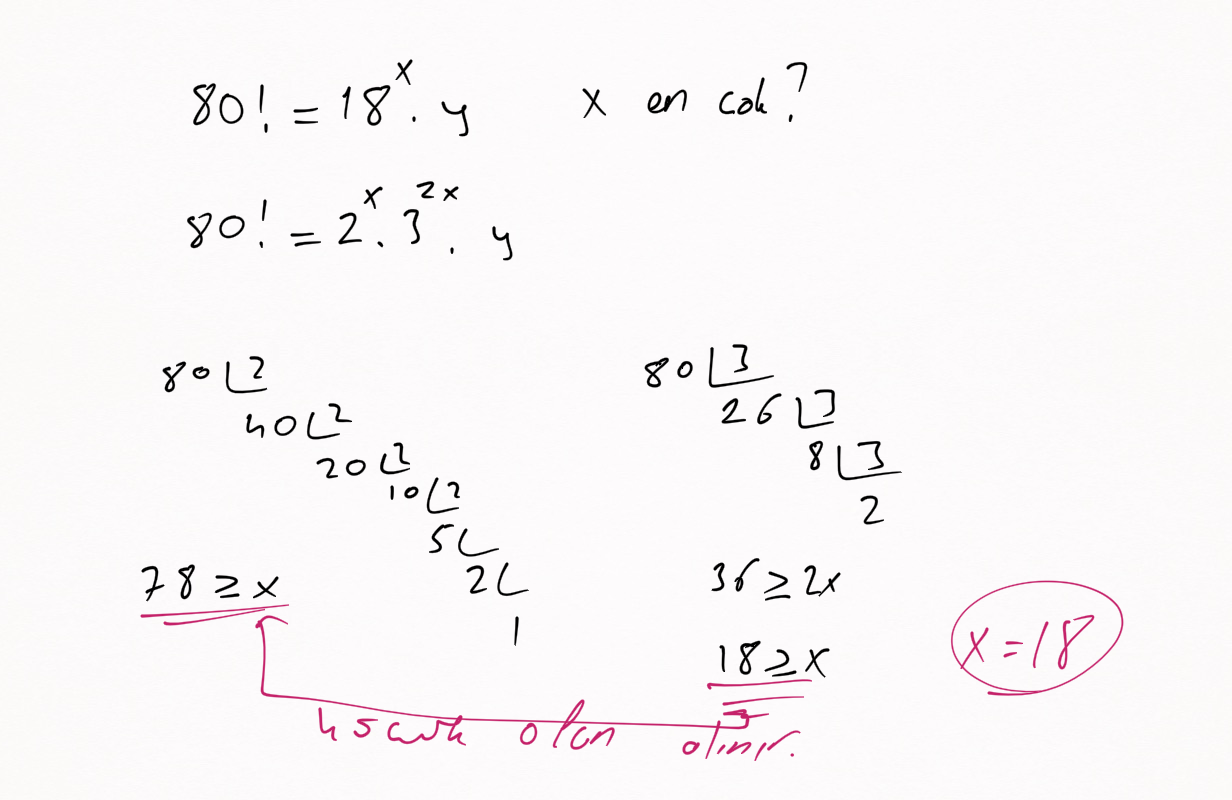 80! = 18^x . y   x en cok?
80! = 2^x . 3^2x . y
80 2
40 2
20 2
10 2
5
2
1
78 ≥ x
80 3
26 3
8 3
2
36 ≥ 2x
18 ≥ x
x = 18
olan olinir.